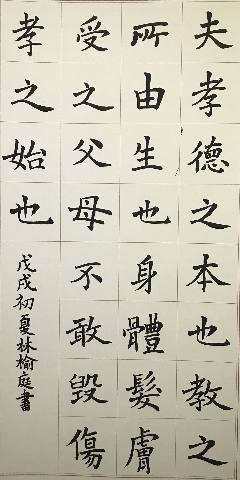 夫孝德之本也教之
所由生也身體髮膚
受之父母不敢毀傷
孝之始也
戊戌初夏林榆庭書